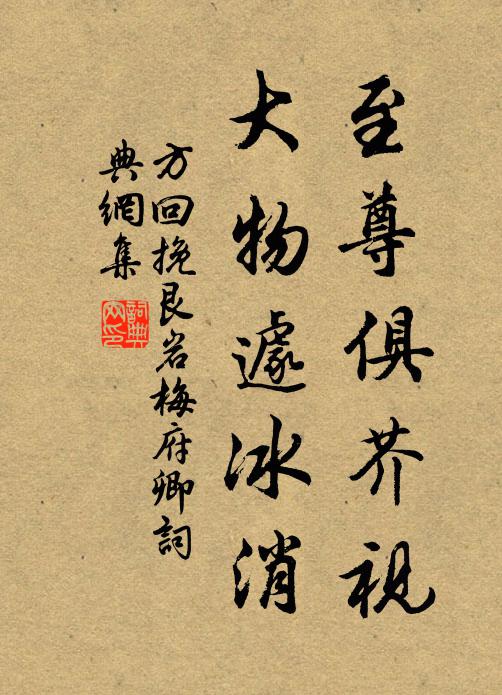 至尊俱芥視
大物遽冰消
方回挽艮岩梅府卿詞
典網集
詞典網印